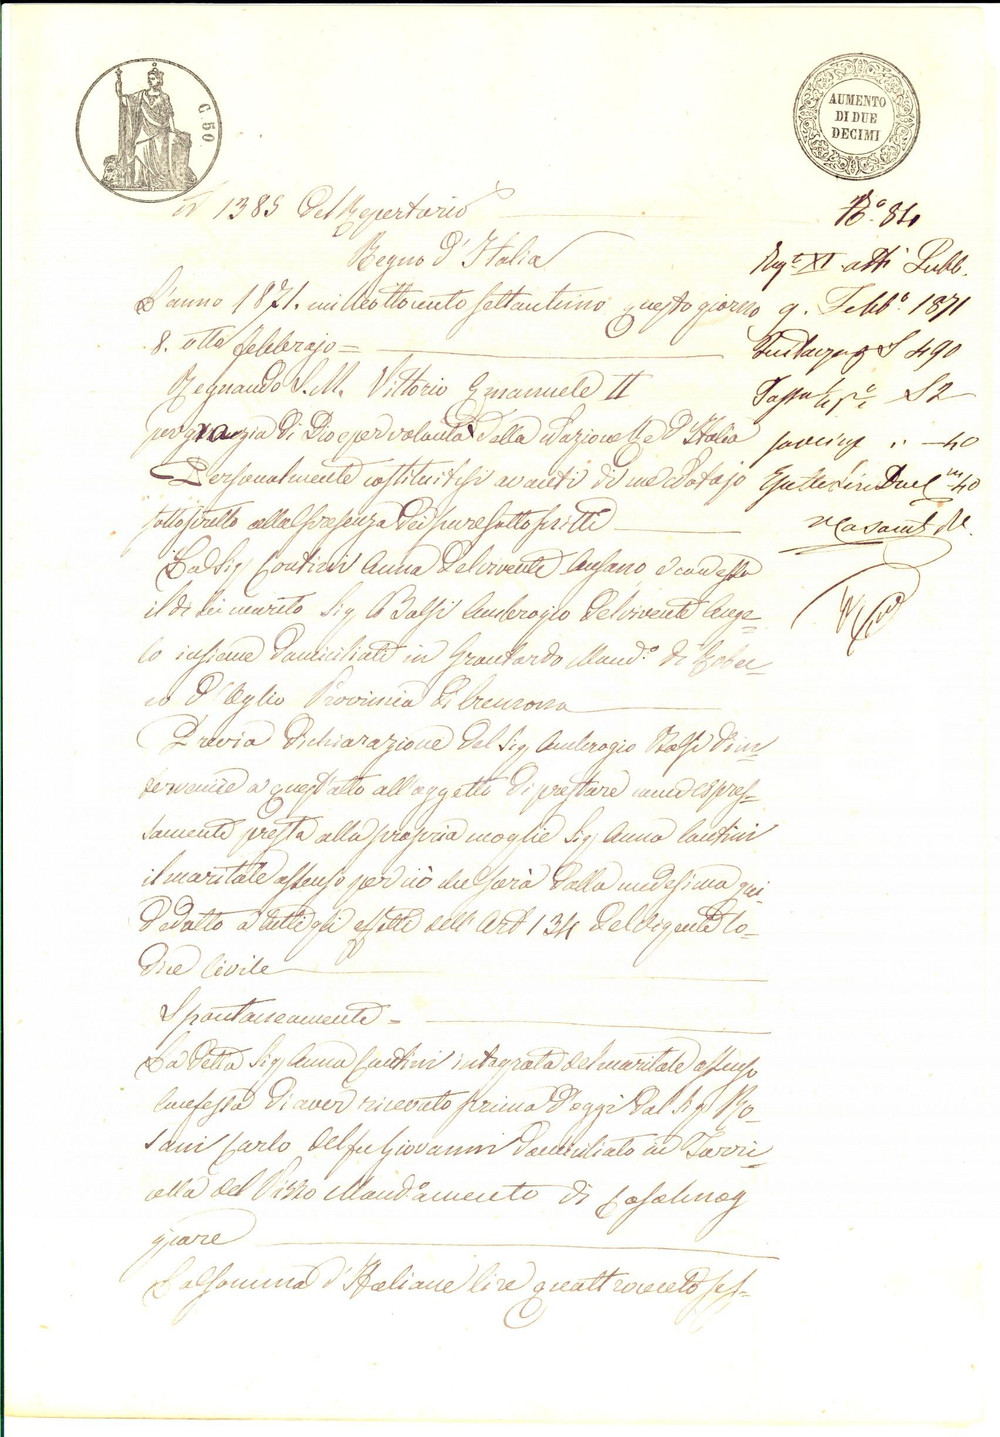 C. 50
AUMENTO
DI DUE
DECIMI
N 1385 del Repertorio
Regno d'Italia
L'anno 1871. milleottocento settantuno questo giorno
8. otto febbrajo =
Regnando S. M. Vittorio Emanuele II
per grazia di Dio e per volontà della Nazione Re d'Italia
Personalmente costituitisi avanti di me Notajo
sottoscritto alla presenza dei pure sottoscritti
La Sig Contini Anna del vivente Ansano, e con essa
il di lei marito Sig Balsi Ambrogio del vivente Ange-
lo insieme domiciliati in Grontardo Mand.o di Robec-
co d'Oglio Provincia di Cremona
Previa dichiarazione del Sig Ambrogio Balsi d'in-
tervenire a quest'atto all'oggetto di prestare come espres-
samente presta alla propria moglie Sig Anna Contini
il maritale assenso per ciò che sarà dalla medesima qui
dedotto a tutti gli effetti dell'Art 134 del vigente Co-
dice Civile
Spontaneamente =
La detta Sig Anna Contini integrata del maritale assenso
confessa di aver ricevuto prima d'oggi dal Sig Ro-
sani Carlo del fu Giovanni domiciliato in Torri-
cella del Pizzo Mandamento di Casalmag
giore
La somma d'Italiane lire quattrocento ses-
N.o 84
Reg. XI atti Pubb.
9. Febb.o 1871
490
Tassa
40
Esatte lire Due 40